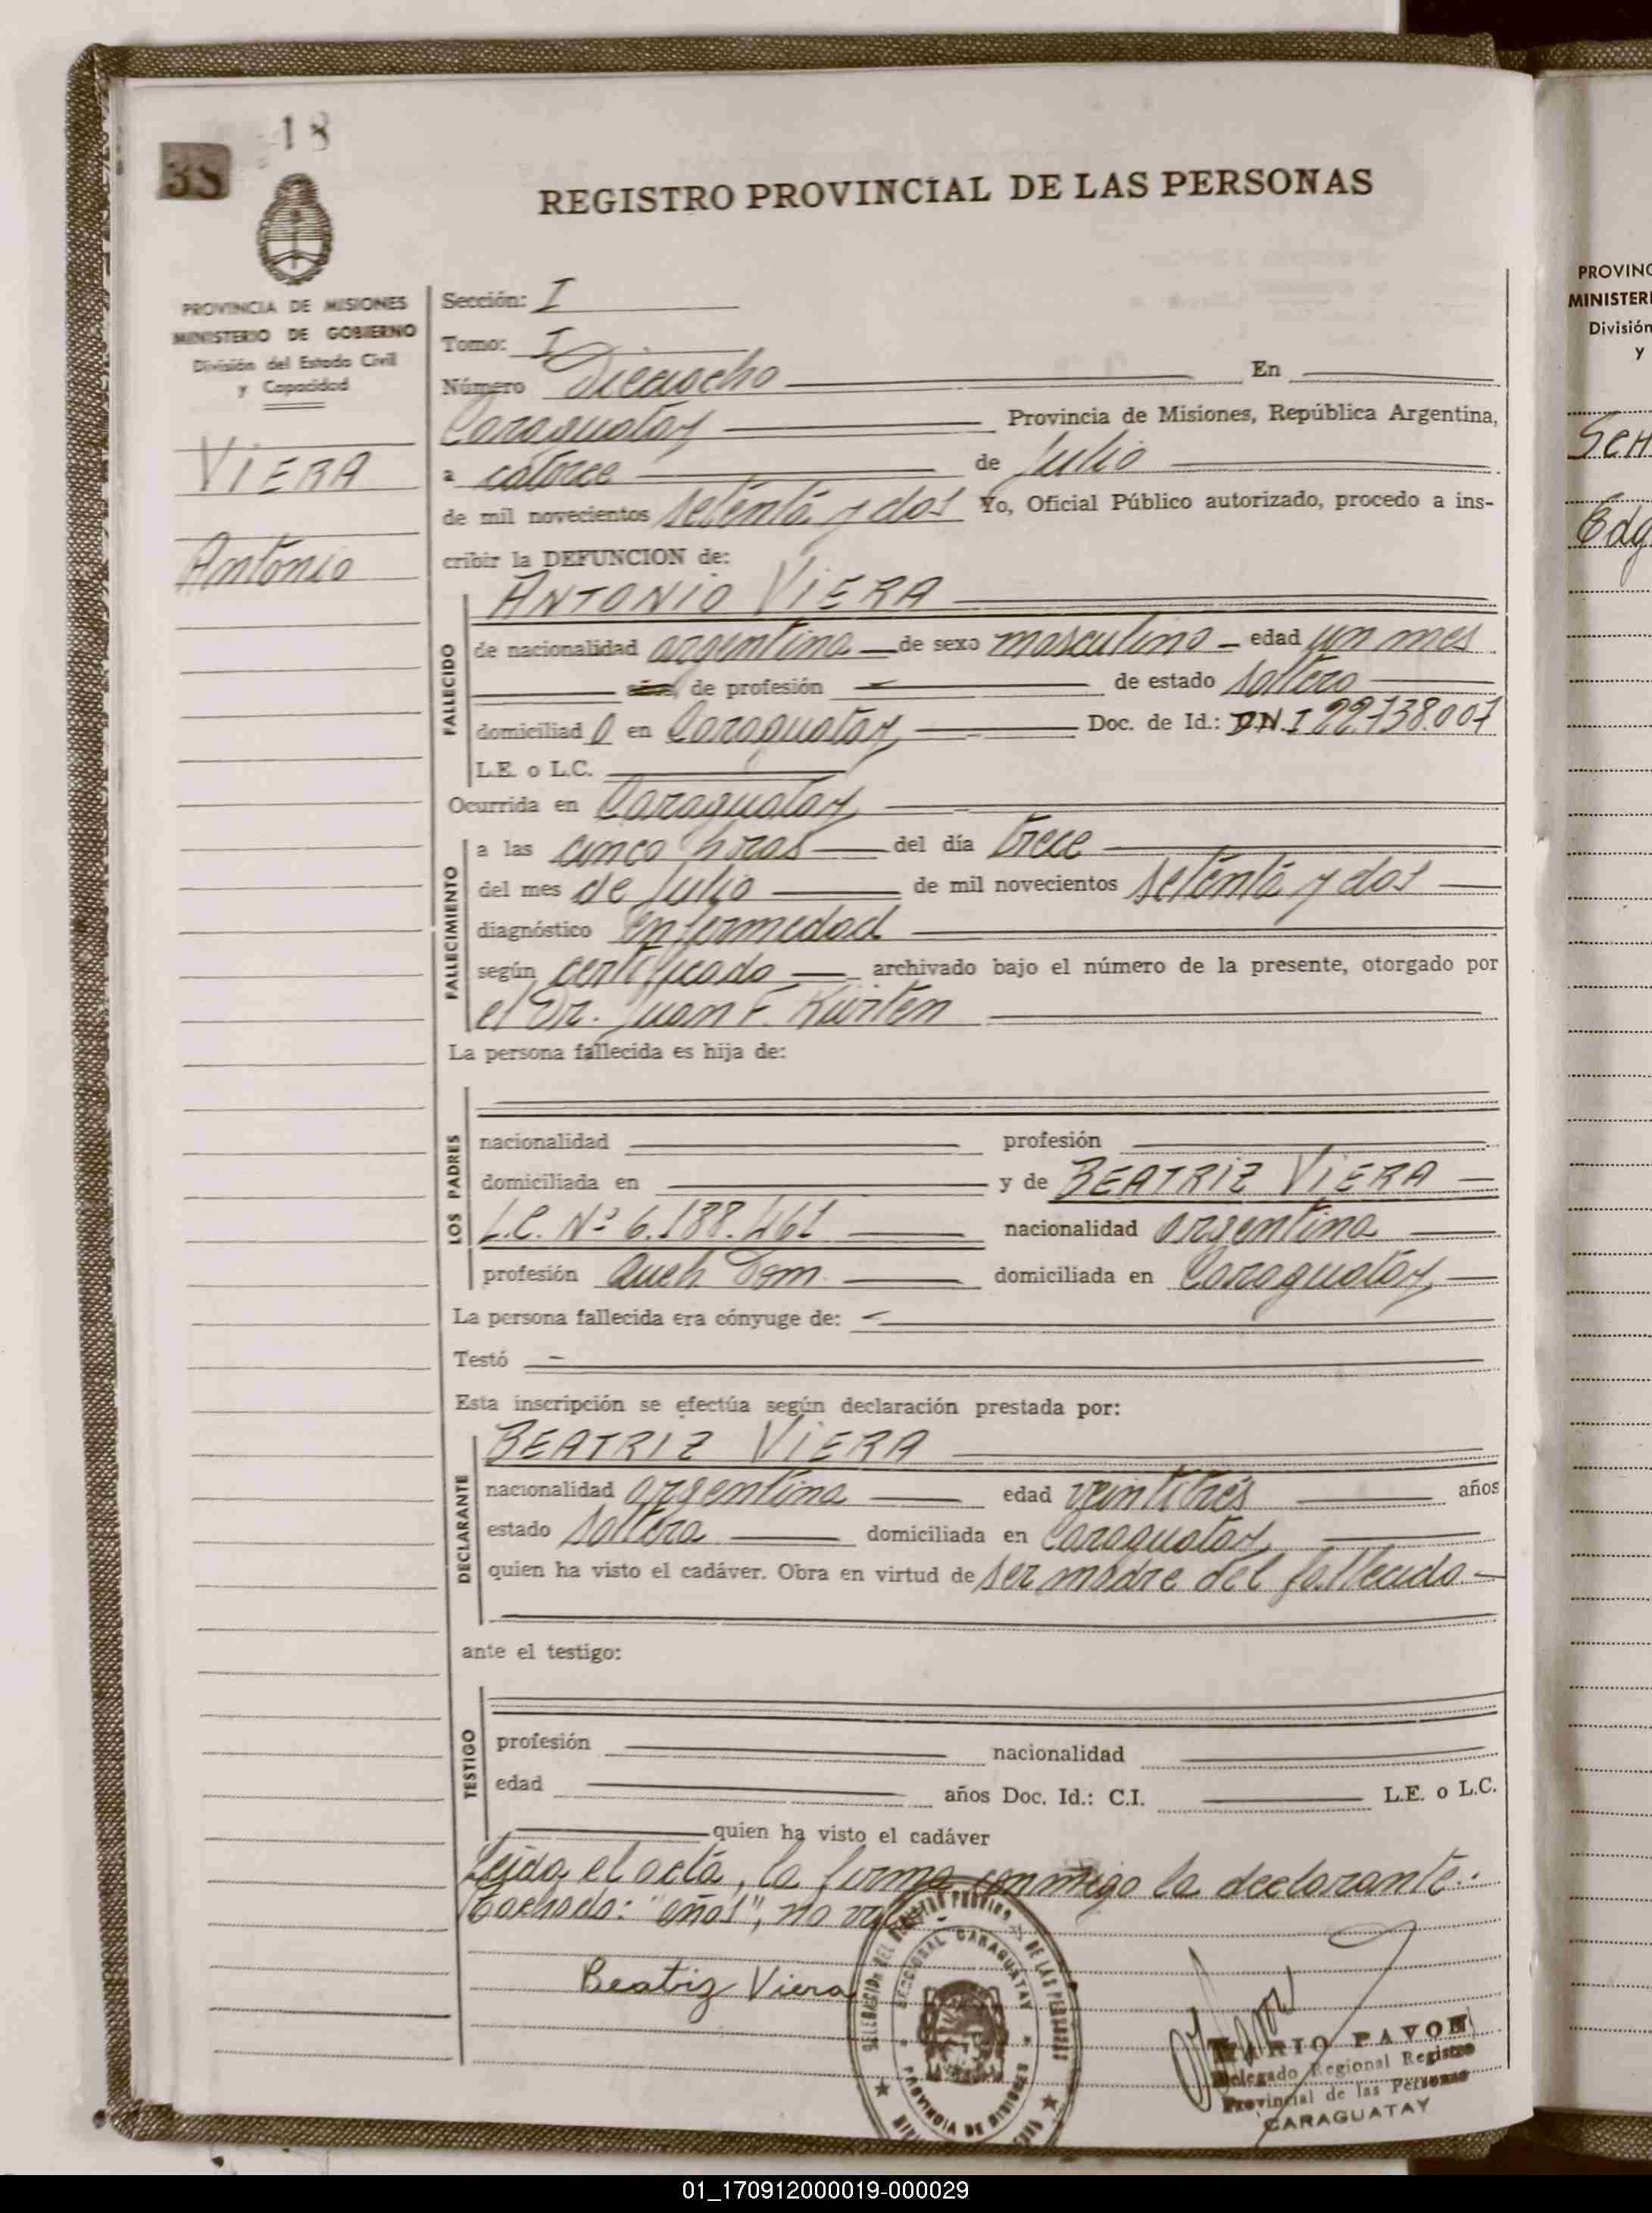 18
38
REGISTRO PROVINCIAL DE LAS PERSONAS
PROVINCIA DE MISIONES
MINISTERIO DE GOBIERNO
División del Estado Civil
y Capacidad
VIERA
Antonio
Sección: I
Tomo: I
Número Dieciocho En
Caraguatay Provincia de Misiones, República Argentina,
a catorce de Julio
de mil novecientos setenta y dos Yo, Oficial Público autorizado, procedo a ins-
cribir la DEFUNCION de:
ANTONIO VIERA
FALLECIDO
de nacionalidad argentina de sexo masculino edad un mes
años, de profesión de estado soltero
domiciliad o en Caraguatay Doc. de Id.: D.N.I 22.738.007
L.E. o L.C.
Ocurrida en Caraguatay
FALLECIMIENTO
a las cinco horas del día trece
del mes de Julio de mil novecientos setenta y dos
diagnóstico Enfermedad
según certificado archivado bajo el número de la presente, otorgado por
el Dr. Juan F. Kürten
La persona fallecida es hija de:
LOS PADRES
nacionalidad profesión
domiciliada en y de BEATRIZ VIERA
L.C. Nº 6.188.461 nacionalidad argentina
profesión Queh Dom. domiciliada en Caraguatay
La persona fallecida era cónyuge de:
Testó
Esta inscripción se efectúa según declaración prestada por:
BEATRIZ VIERA
DECLARANTE
nacionalidad argentina edad veintitrés años
estado soltera domiciliada en Caraguatay
quien ha visto el cadáver. Obra en virtud de ser madre del fallecido.-
ante el testigo:
TESTIGO
profesión nacionalidad
edad años Doc. Id.: C.I. L.E. o L.C.
quien ha visto el cadáver
Leída el acta, la firma conmigo la declarante.-
Tachado: "años", no vale.-
Beatriz Viera
SECCIONAL CARAGUATAY
DE LAS PERSONAS
PROVINCIA DE MISIONES
MARIO PAVON
Delegado Regional Registro
Provincial de las Personas
CARAGUATAY
PROVINC
MINISTERI
División
y
SCH
Edg
01_170912000019-000029